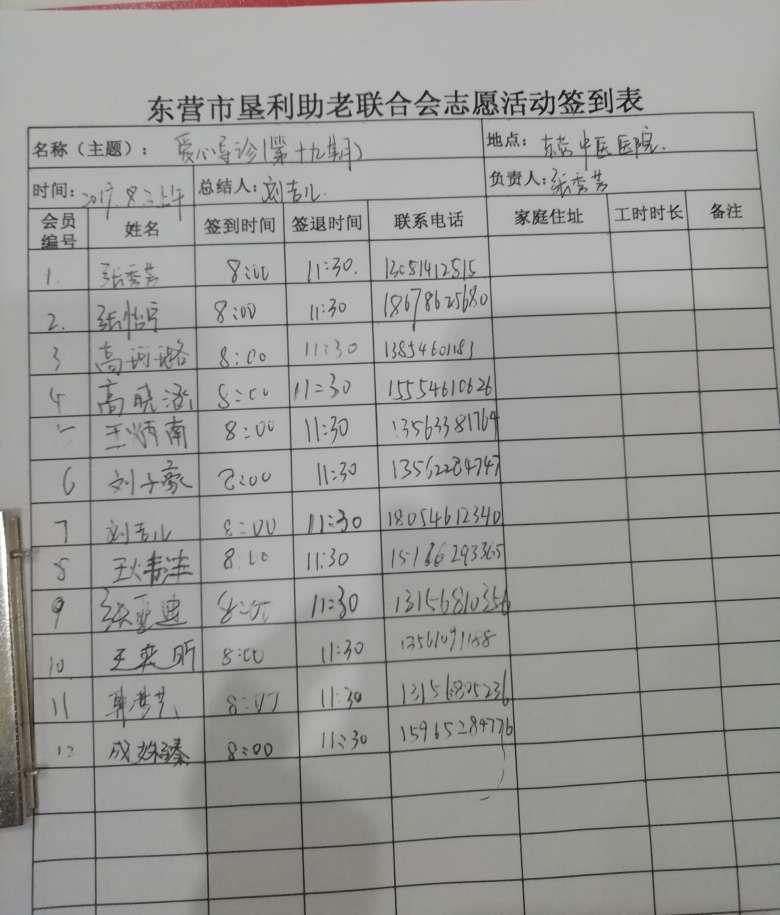 东营市垦利助老联合会志愿活动签到表
名称（主题）： 爱心导诊(第十九期) 地点： 东营中医医院.
时间： 2017.8.二上午 总结人： 刘吉儿. 负责人： 张秀芳
会员编号 姓名 签到时间 签退时间 联系电话 家庭住址 工时时长 备注
1. 张秀芳 8:00 11:30. 13051412515
2. 张怡宁 8:00 11:30 18678625680
3 高 8:00 11:30
4 高晓 8:00 11:30 15554610626
王炳南 8:00 11:30 13563381764
6 刘子豪 8:00 11:30
7 刘吉儿 8:00 11:30 18054612340
8 王 8:00 11:30 15166293365
9 张亚迪 8:00 11:30 13156810356
10 王奕昕 8:00 11:30
11 8:00 11:30 13156805236
12 成 8:00 11:30 15965284776